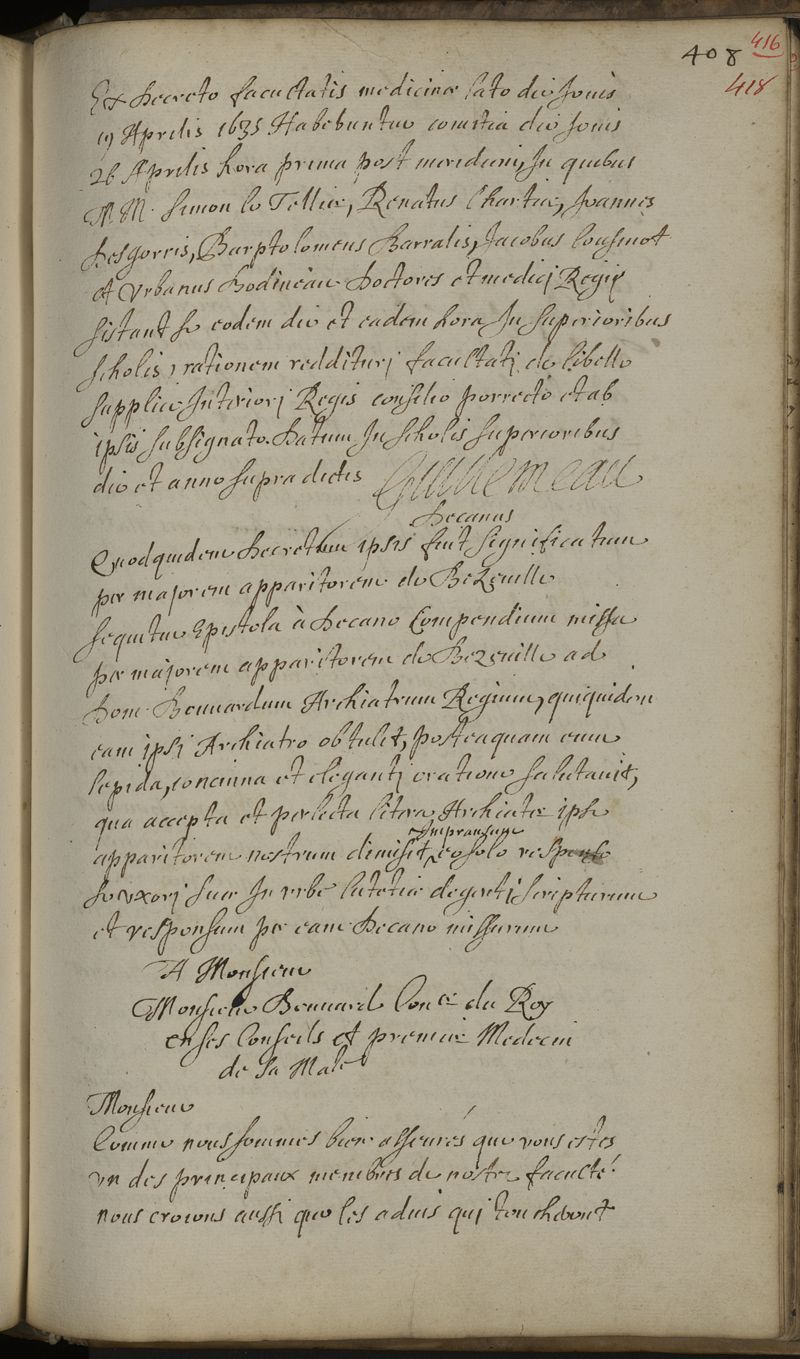 408
416
418
Ex Decreto facultatis medicinæ lato die Jovis
19 Aprilis 1635 Habebuntur comitia die Jovis
26 Aprilis hora prima post meridiem, In quibus
M.M. Simon le Tellier, Renatus Chartier, Joannes
Desgorris, Barptolomeus Barralis, Jacobus Cousinot
et Urbanus Bodineau Doctores et medicj Regij
sistant se eodem die et eadem hora In superioribus
scholis, rationem redditurj facultatj de libello
supplice Interiorj Regis consilio porrecto et ab
ipsis subsignato. Datum In scholis superioribus
die et anno supra dictis Guillemeau
Decanus
Quodquidem Decretum ipsis fuit significatum
per majorem apparitorem de Bezeuille
sequitur Epistola à Decano Compendium missa
per majorem apparitorem de Bezeuille ad
Dom. Bouuardum Archiatrum Regium, quiquidem
eam ipsj Archiatro obtulit, posteaquam eum
lepida, concinna et elegantj oratione salutauit,
qua accepta et perlecta litera Archiater ipse
Impransum
apparitorem nostrum dimisit, eo solo responso
se uxorj suæ In urbe lutetiæ degentj scripturum
et responsum per eam Decano missurum
A Monsieur
Monsieur Bouuard Con.er du Roy
en ses Conseils et premier Medecin
de sa Ma.te
Monsieur
Comme nous sommes bien asseurés que vous estes
un des principaux membres de nostre faculté
nous croions aussi que les aduis quj touchent